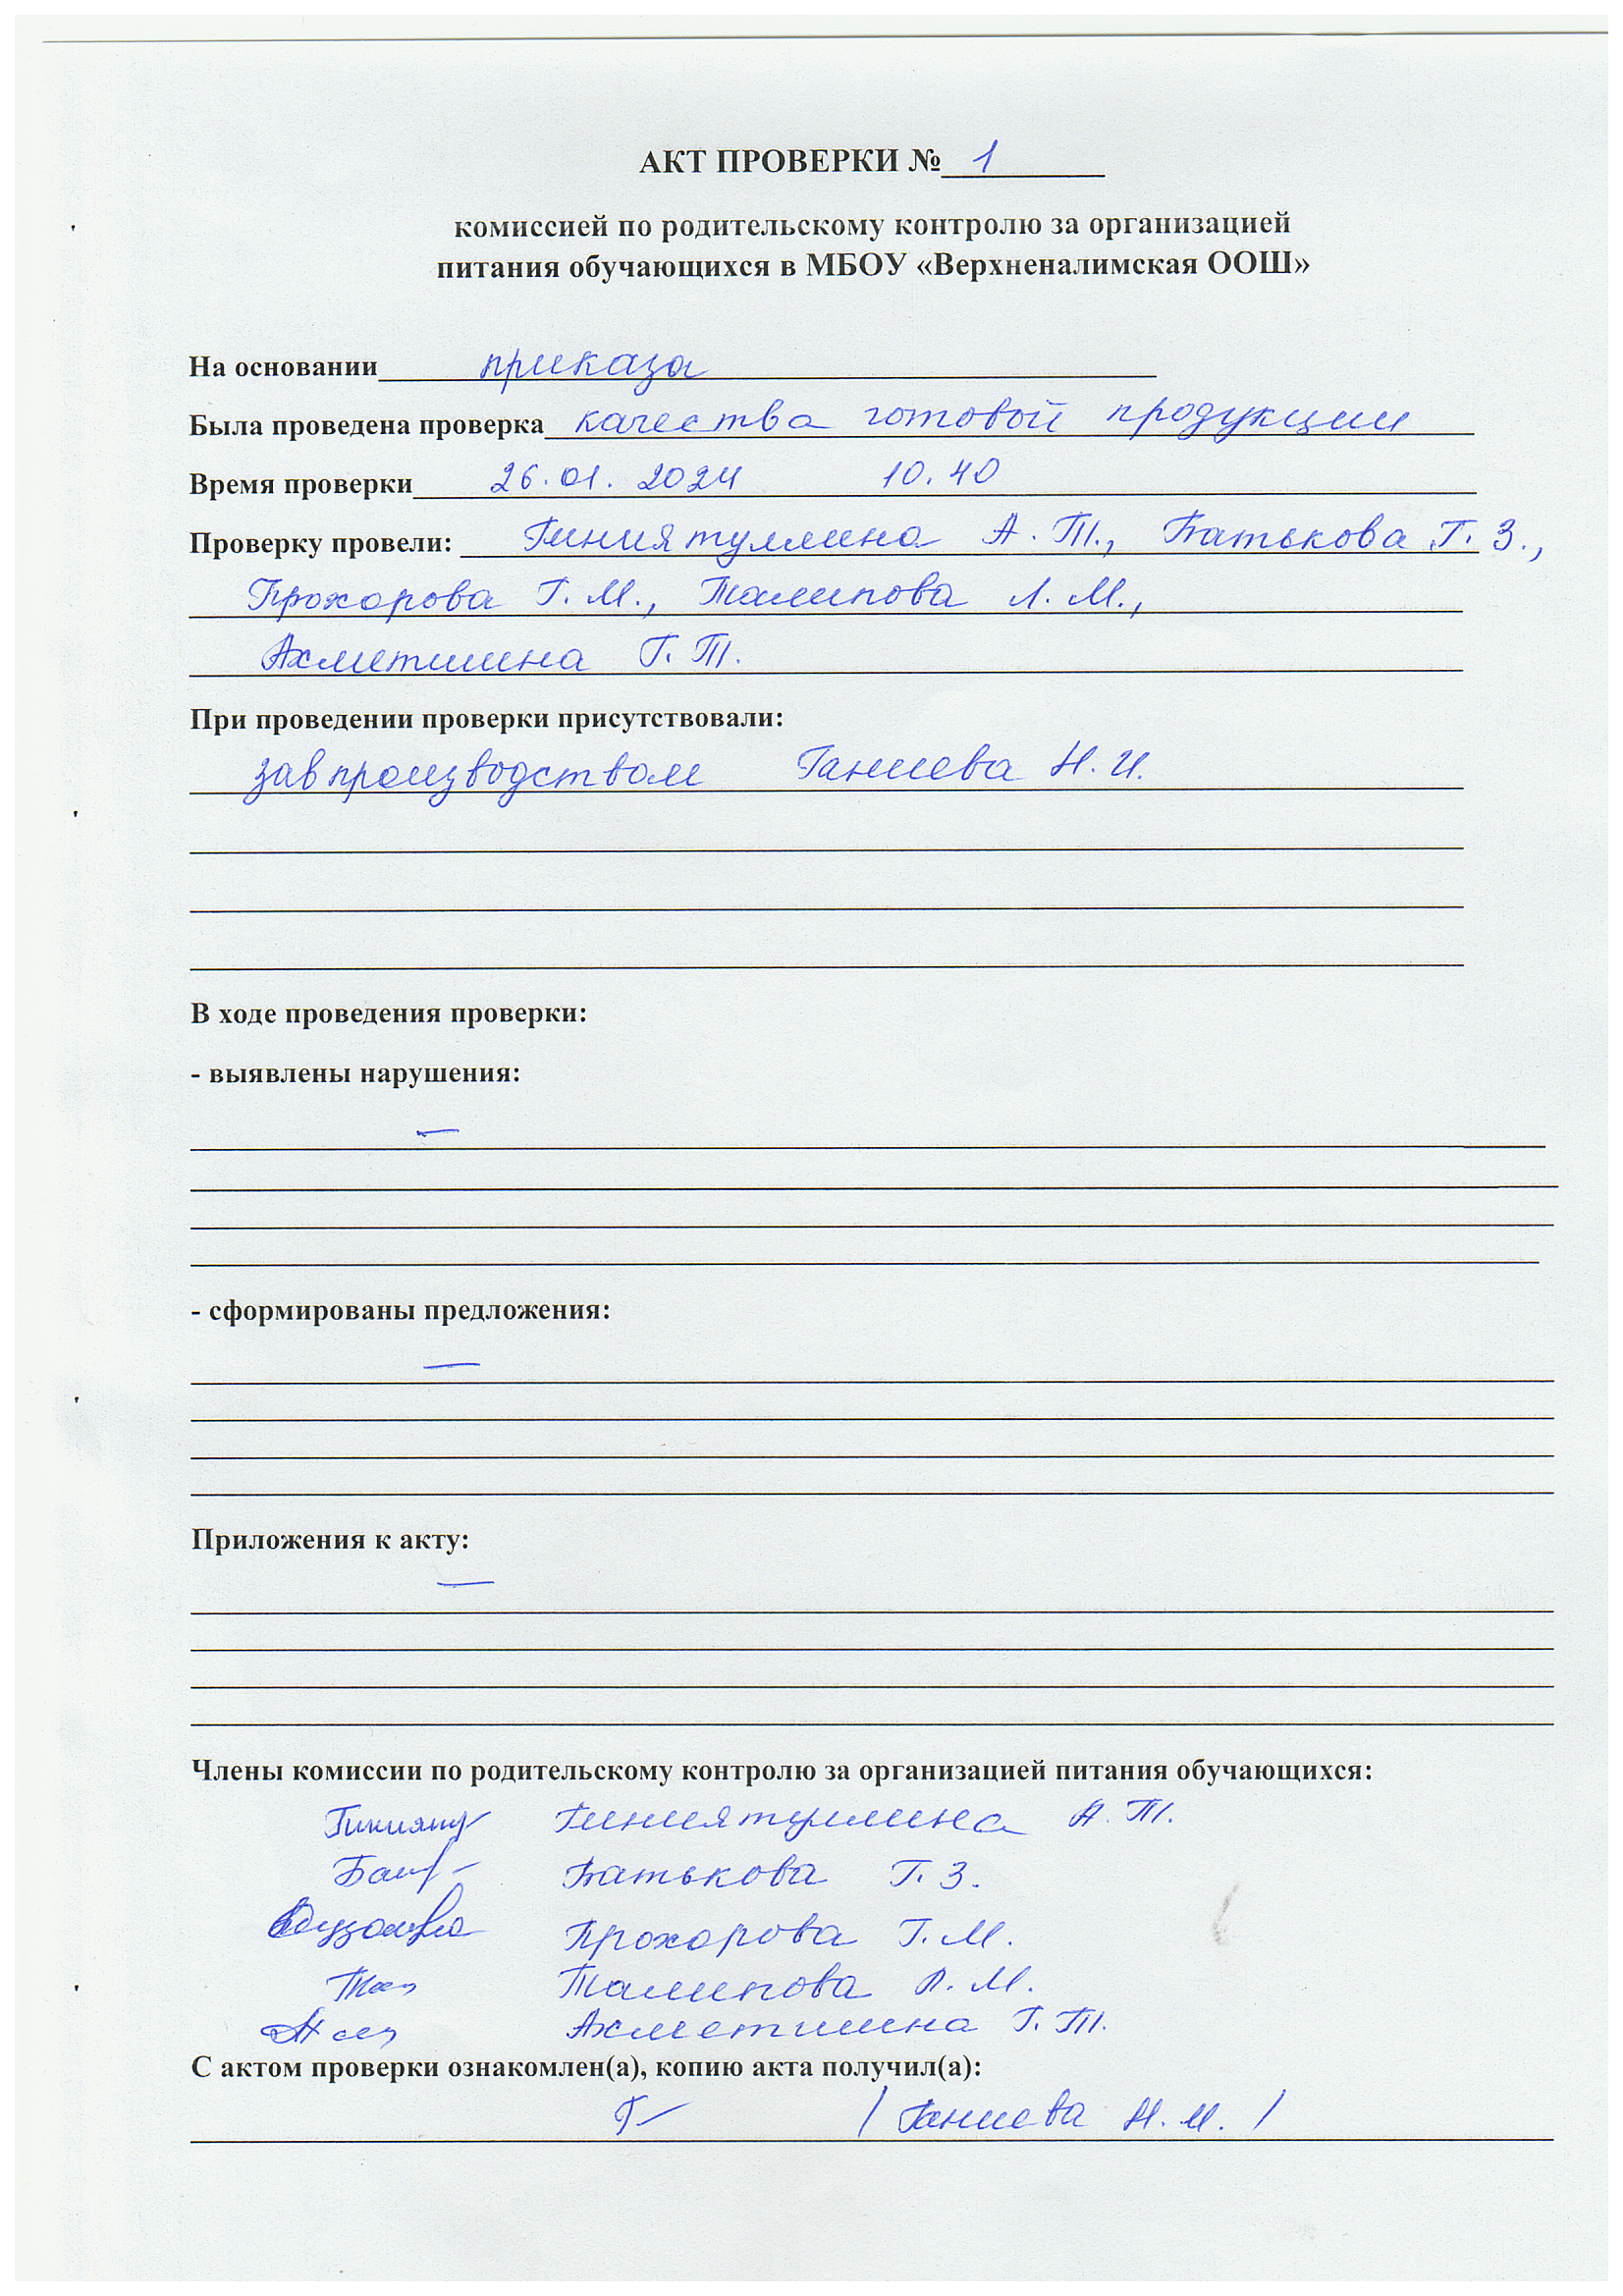 АКТ ПРОВЕРКИ № 1
комиссией по родительскому контролю за организацией
питания обучающихся в МБОУ «Верхненалимская ООШ»
На основании приказа
Была проведена проверка качества готовой продукции
Время проверки 26.01.2024 10.40
Проверку провели: Гиниятуллина А.Т., Батькова Г.З.,
Прохорова Г.М., Талипова Л.М.,
Ахметшина Г.Т.
При проведении проверки присутствовали:
завпроизводством Ганиева Н.И.
В ходе проведения проверки:
- выявлены нарушения:
—
- сформированы предложения:
—
Приложения к акту:
—
Члены комиссии по родительскому контролю за организацией питания обучающихся:
Гиниятуллина А.Т.
Батькова Г.З.
Прохорова Г.М.
Талипова Л.М.
Ахметшина Г.Т.
С актом проверки ознакомлен(а), копию акта получил(а):
/ Ганиева Н.И. /